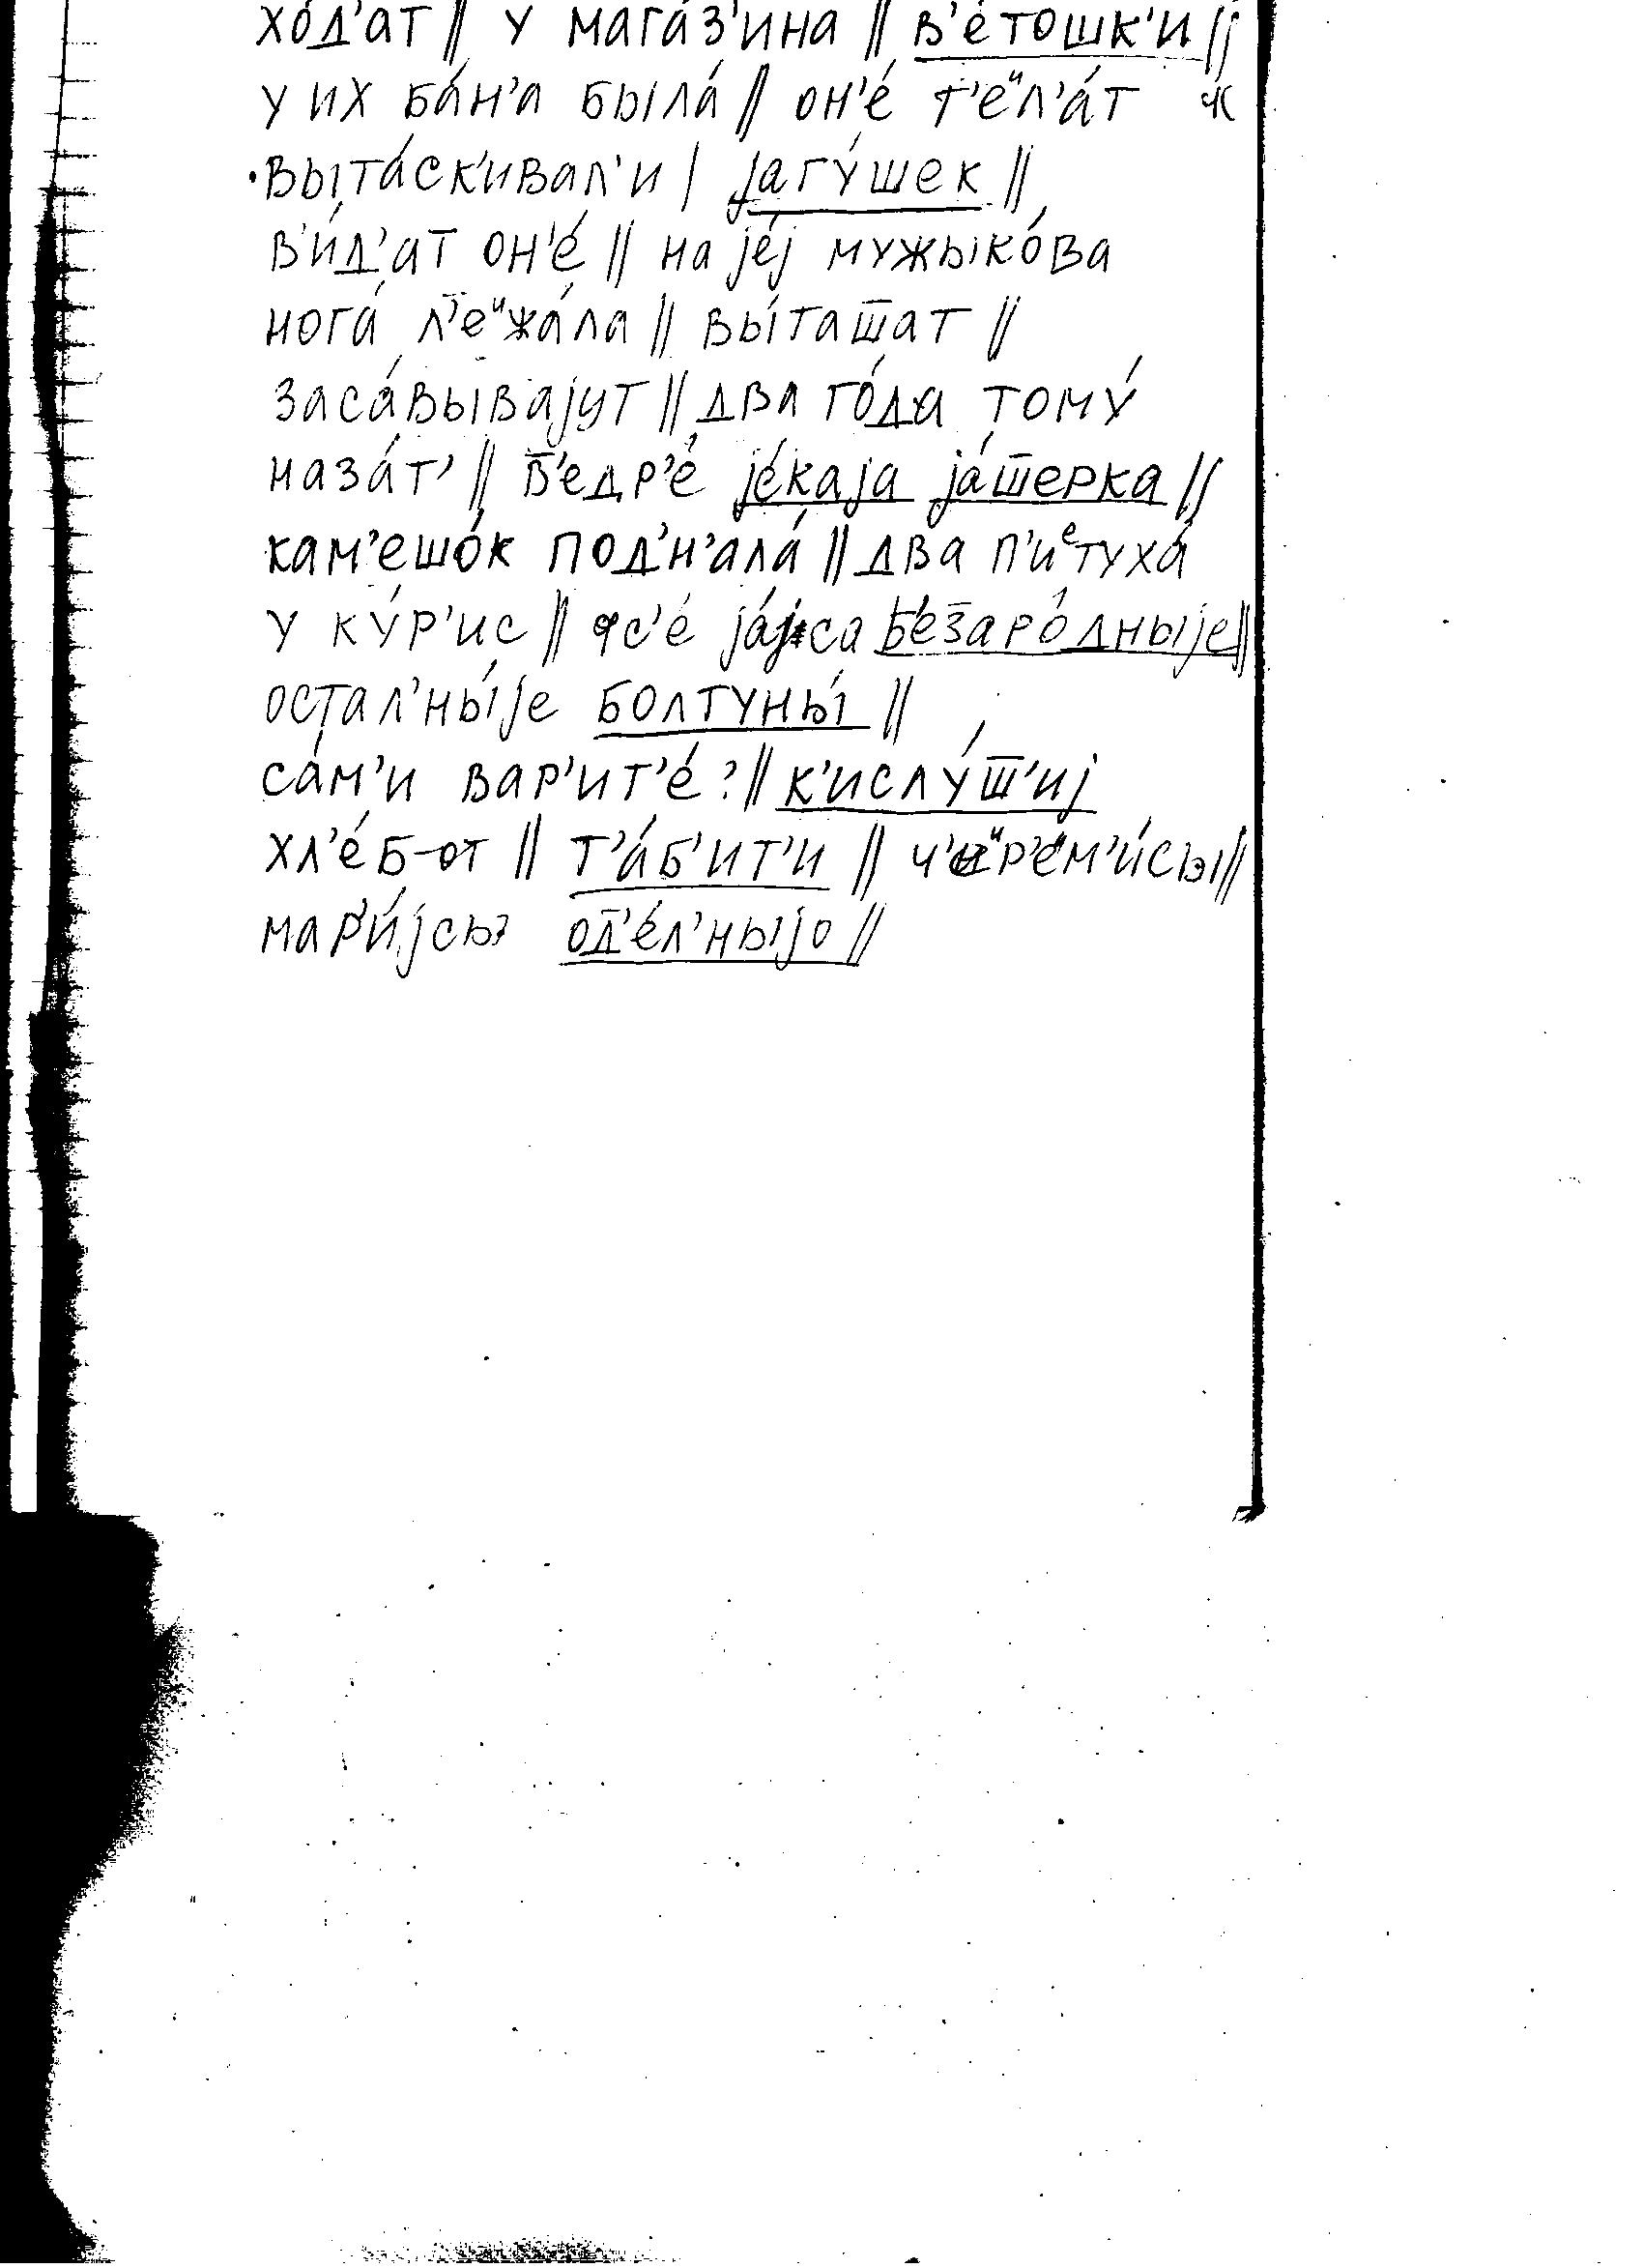 хо́д'ат || у мага́з'ина || в'е́тошк'и ||
у их ба́н'а была́ || он'е́ т'еᵘп'а́т
выта́ск'ивал'и | јагу́шек ||
в'и́д'ат он'е́ || на је́ј мужыко́ва
нога́ л'еᵘжа́ла || вы́таш̅ат ||
заса́вывајут || два го́да тому́
наза́т' || в̅'едр'е́ је́каја ја́ш̅ерка ||
кам'ешо́к под'н'ала́ || два п'иᵉтуха́
у ку́р'ис || фс'е́ ја́јса б'езаро́дныје ||
остал'ны́је болтуны́ ||
са́м'и вар'ит'е́? || к'ислу́ш̅'иј
хл'е́б-от || т'а́б'ит'и || ч'иᵘр'ем'и́сы ||
мар'и́јсы од̅'е́л'ныјо ||